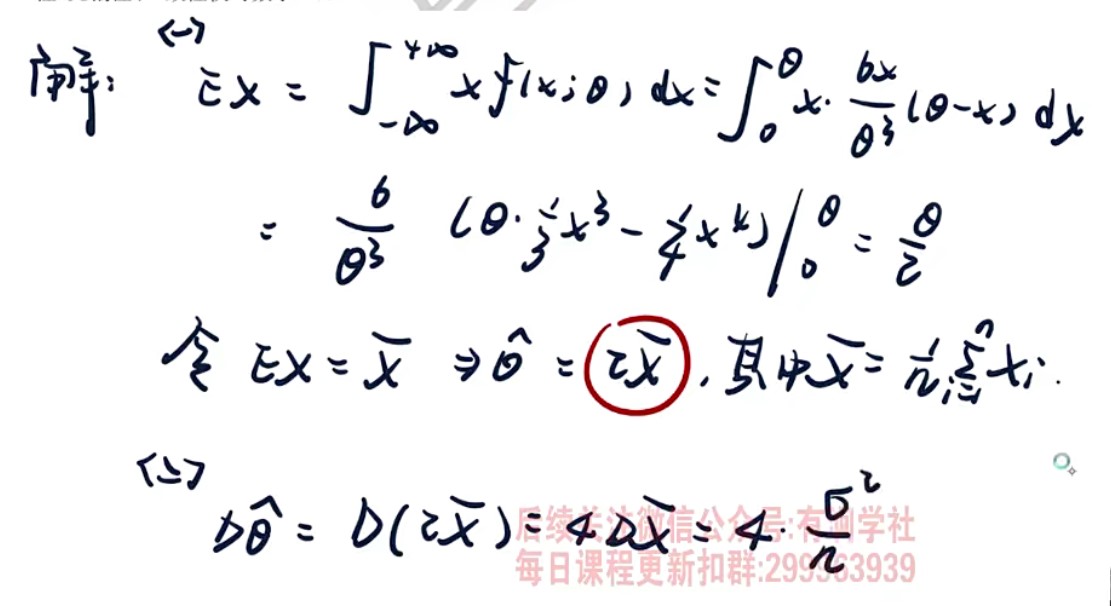 解: (一) EX = ∫_{-∞}^{+∞} x f(x;θ) dx = ∫_0^θ x · 6x/θ³ (θ-x) dx
= 6/θ³ (θ·1/3 x³ - 1/4 x⁴) |_0^θ = θ/2
令 EX = X̄ ⇒ θ̂ = 2X̄, 其中 X̄ = 1/n Σ_{i=1}^n Xi.
(二)
Dθ̂ = D(2X̄) = 4DX̄ = 4 · σ²/n
后续关注微信公众号:有渊学社
每日课程更新扣群:299363939